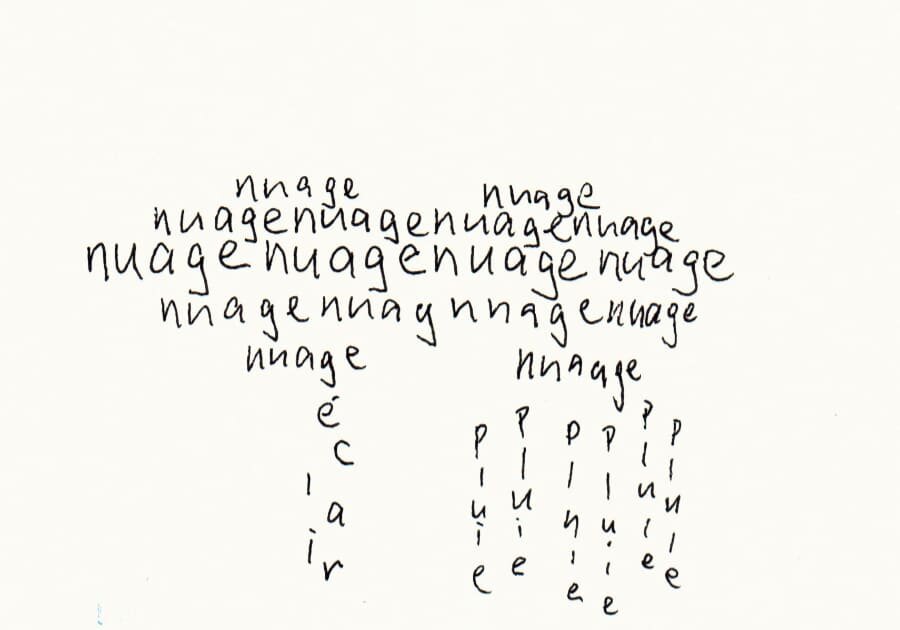 nuage nuage
nuagenuagenuagenuage
nuagenuagenuagenuage
nuagenuagnuagenuage
nuage nuaage
éclair
pluie
pluie
pluie
pluie
pluie
pluie